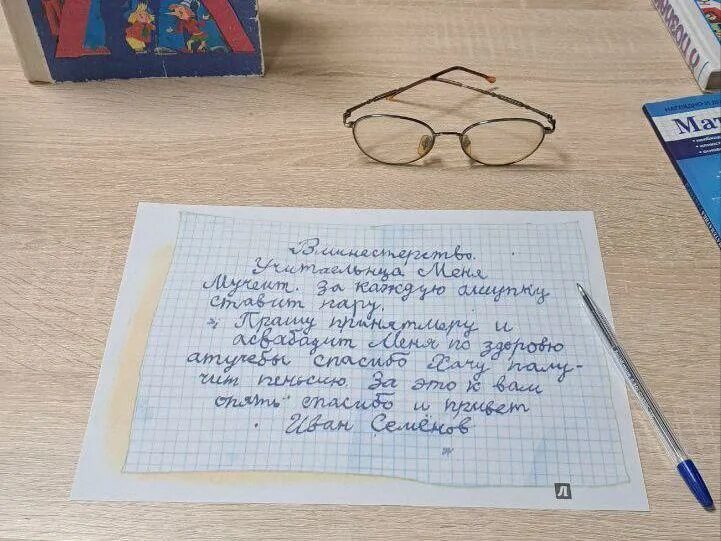 Вминестерство.
Учитаельнца Меня
Мучеит. за каждую ашупку
ставит пару.
Прашу принятмеру и
асвабадит Меня по здоровю
атучебы спасибо Хачу палу-
чит пеньсию. За это к вам
опять спасибо и привет
Иван Семёнов
НАГЛЯДНО И Д
Мат
Л